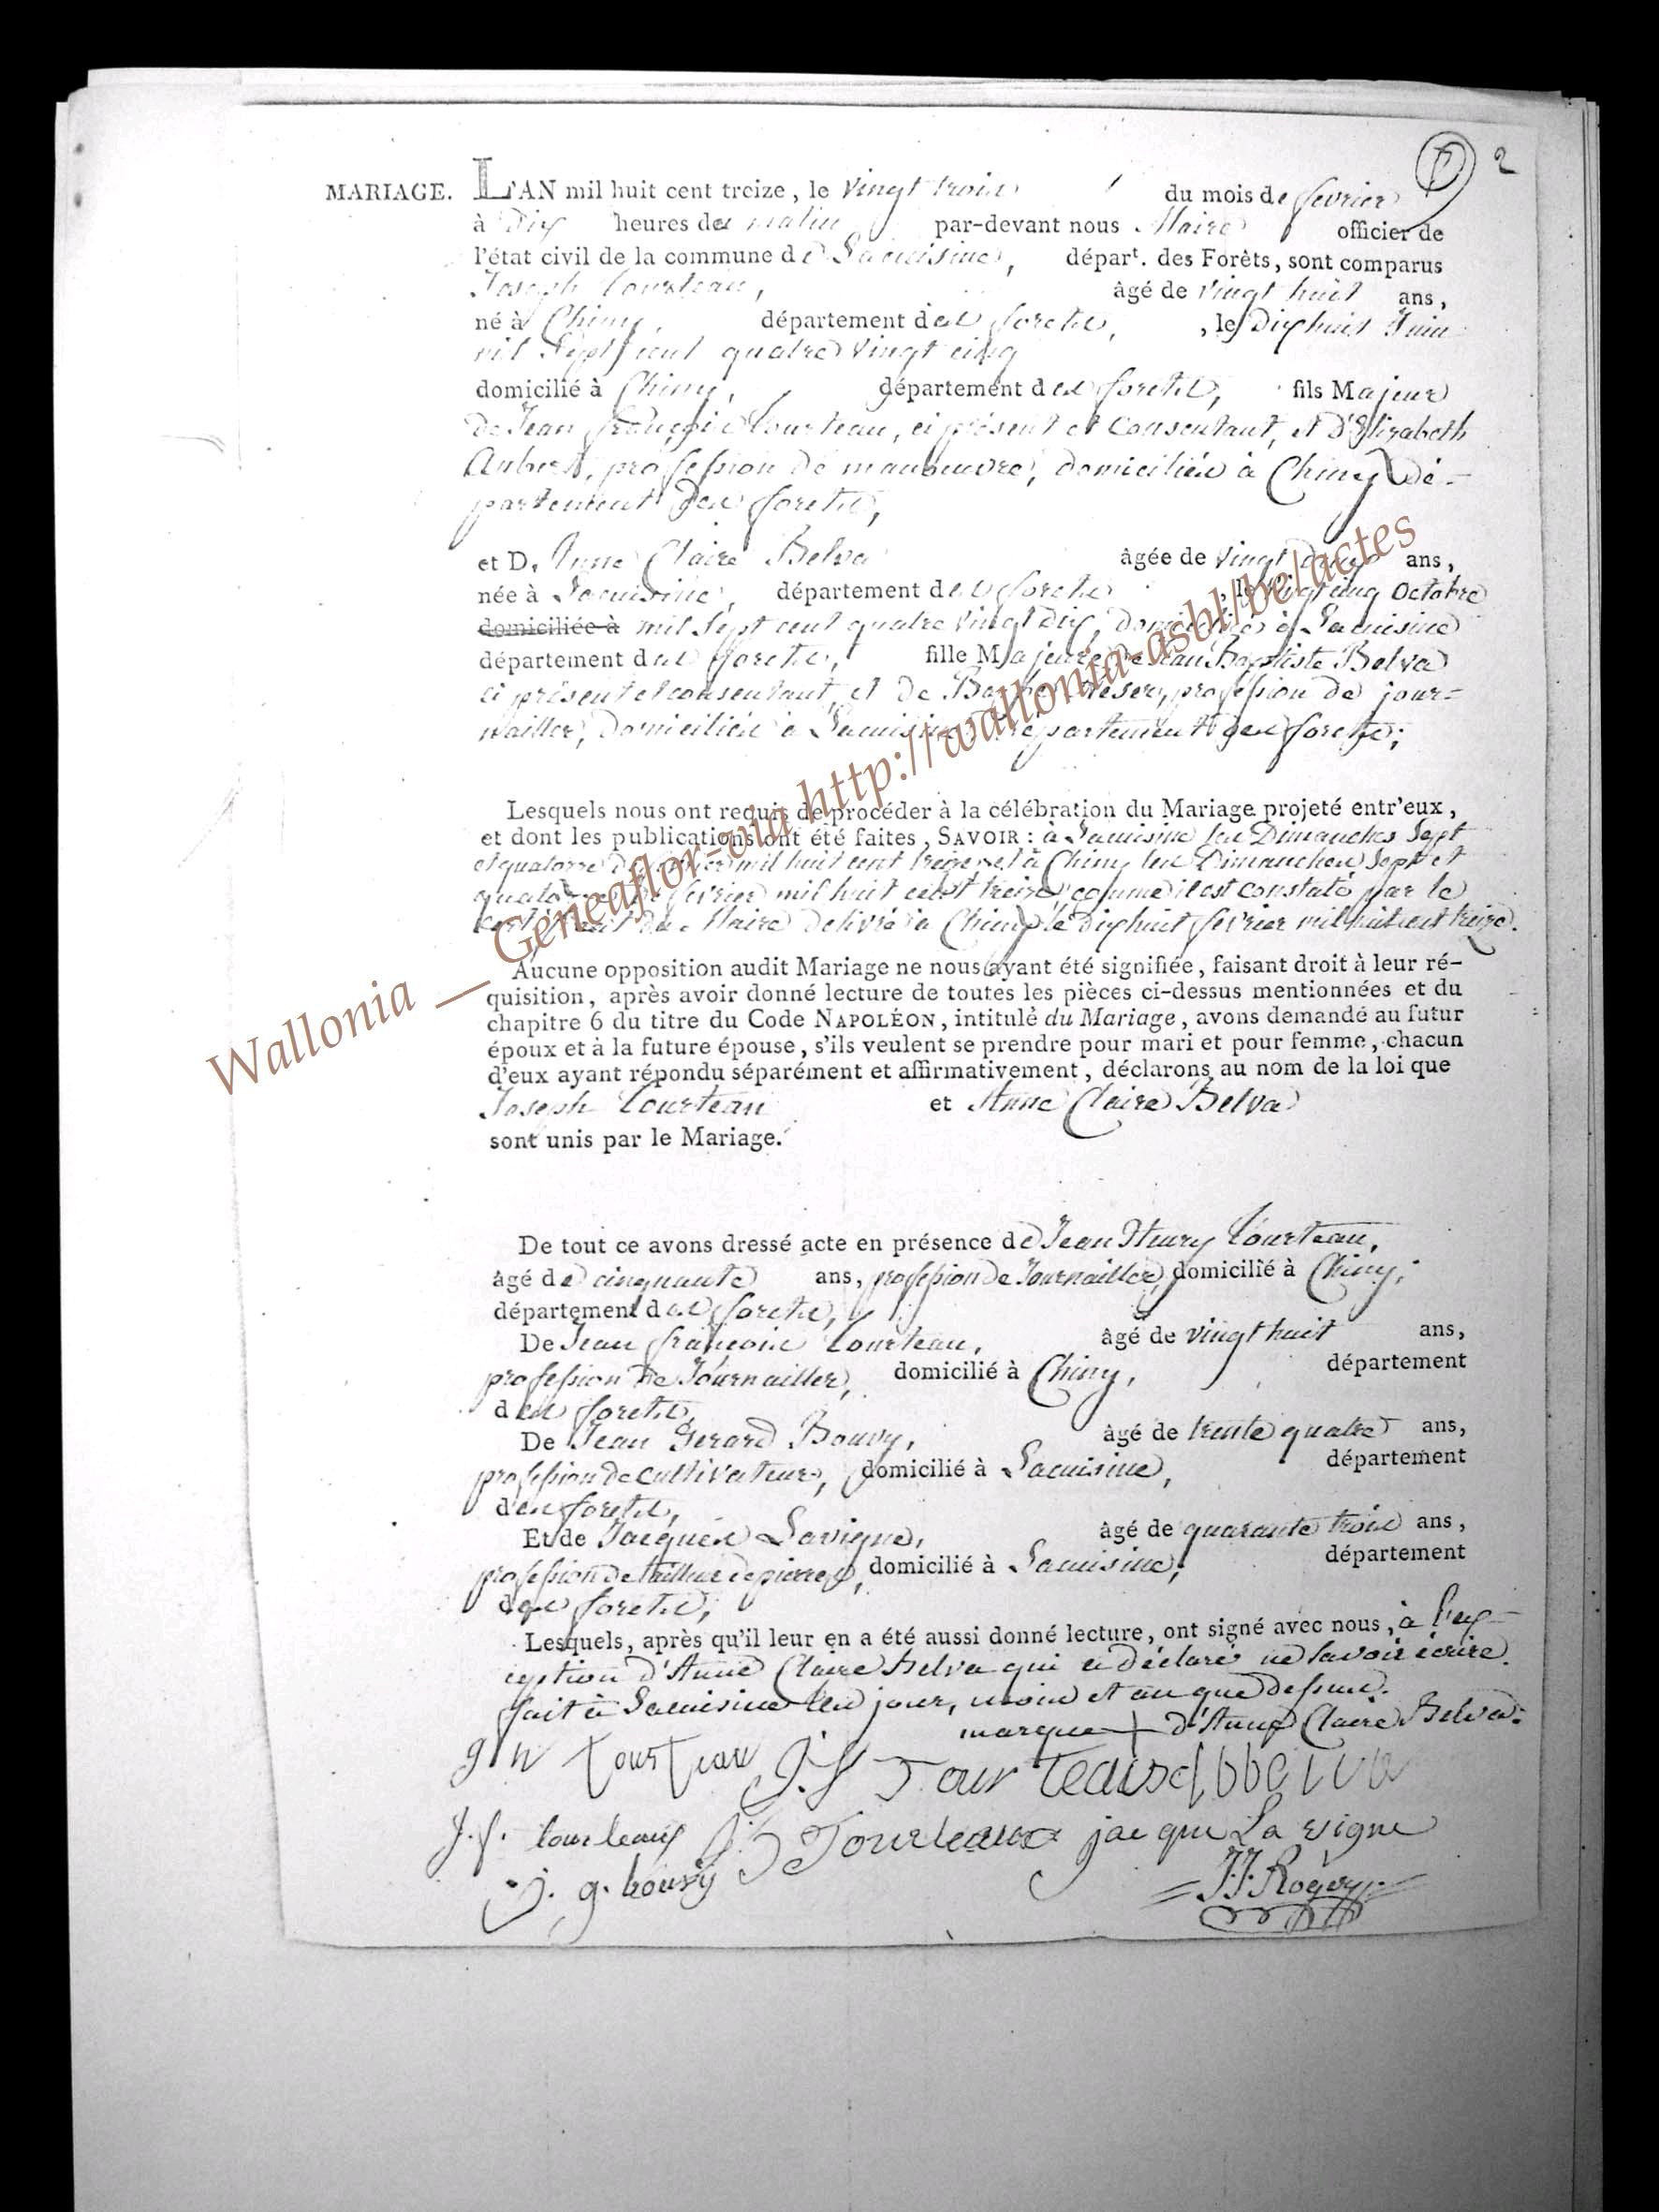 2
MARIAGE. L'AN mil huit cent treize, le vingt trois du mois de fevrier
à dix heures du matin par-devant nous Maire officier de
l'état civil de la commune de Lacuisine, départ. des Forêts, sont comparus
Joseph Tourteau, âgé de vingt huit ans,
né à Chiny, département des foretz, , le dix huit Juin
mil Sept cent quatre vingt cinq
domicilié à Chiny, département des foretz, fils Majeur
de Jean françois Tourteau, ci présent et Consentant, et d'Elizabeth
Aubert, profession de manoeuvre, domiciliés à Chiny dé-
partement des foretz,
et D. Anne Claire Belva âgée de vingt deux ans,
née à Lacuisine, département des foretz , le vingt cinq Octobre
domiciliée à mil Sept cent quatre vingt dix, domiciliée à Lacuisine
département des foretz, fille Majeure de Jean Baptiste Belva
ci présent et consentant, et de profession de jour-
nailler, domiciliés à Lacuisine département des foretz;
Lesquels nous ont requis de procéder à la célébration du Mariage projeté entr'eux,
et dont les publications ont été faites, SAVOIR : à Lacuisine les Dimanches Sept
et quatorze de fevrier mil huit cent treize, et à Chiny les Dimanches Sept et
quatorze de fevrier mil huit cent treize, comme il est constaté par le
certificat du Maire delivré à Chiny le dix huit fevrier mil huit cent treize.
Aucune opposition audit Mariage ne nous ayant été signifiée, faisant droit à leur ré-
quisition, après avoir donné lecture de toutes les pièces ci-dessus mentionnées et du
chapitre 6 du titre du Code NAPOLÉON, intitulé du Mariage, avons demandé au futur
époux et à la future épouse, s'ils veulent se prendre pour mari et pour femme, chacun
d'eux ayant répondu séparément et affirmativement, déclarons au nom de la loi que
Joseph Tourteau et Anne Claire Belva
sont unis par le Mariage.
De tout ce avons dressé acte en présence de Jean Henry Tourteau,
âgé de cinquante ans, profession de Journailler, domicilié à Chiny,
département des foretz,
De Jean françois Tourteau, âgé de vingt huit ans,
profession de Journailler, domicilié à Chiny, département
des foretz,
De Jean Gerard Bouvy, âgé de trente quatre ans,
profession de cultivateur, domicilié à Lacuisine, département
des foretz,
Et de Jacques Lavigne, âgé de quarante trois ans,
profession de tailleur de pierres, domicilié à Lacuisine, département
des foretz,
Lesquels, après qu'il leur en a été aussi donné lecture, ont signé avec nous, à l'ex-
ception d'Anne Claire Belva qui a déclaré ne savoir écrire.
fait à Lacuisine les jour, mois et an que dessus.
marque + d'Anne Claire Belva.
J h tourteau J. f Tourteau
J. f. tourteaux Tourteaux jacque La vigne
J. g. bouvy J. J. Rogery
Wallonia __ Geneaflor-via http://wallonia-asbl/be/actes